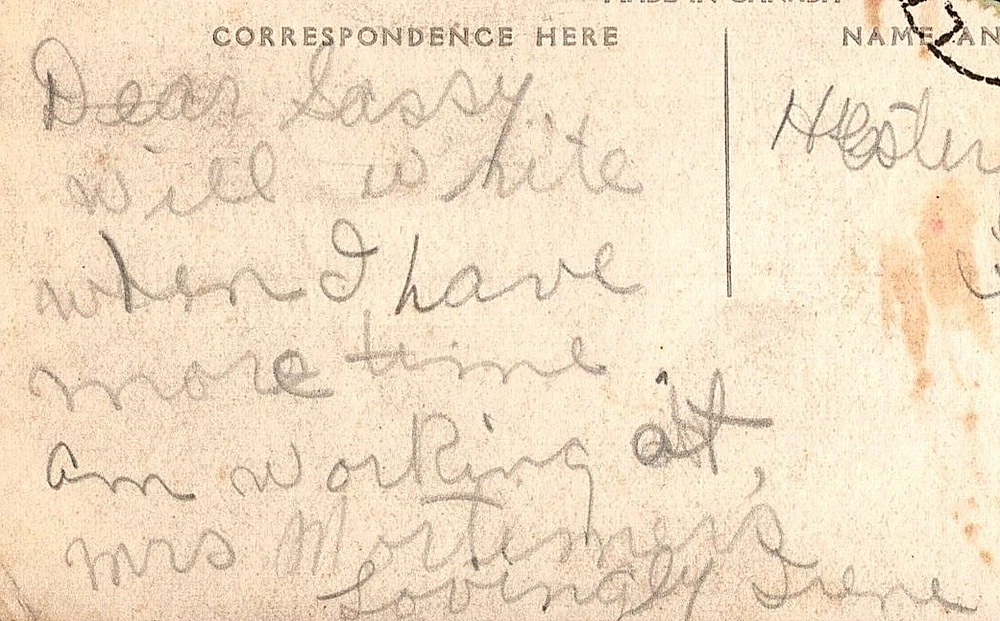 MADE IN CANADA
CORRESPONDENCE HERE
NAME AN
Dear Sassy
will white
when I have
more time
am working at,
mrs Mortimers
Lovingly Irene
Hester